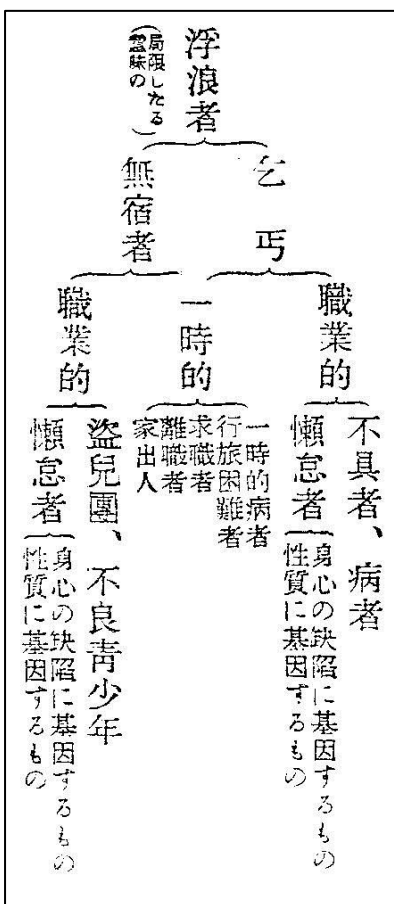 浮浪者
(局限したる
意味の)
乞丐
無宿者
職業的
一時的
職業的
不具者、病者
懶怠者
身心の缺陷に基因するもの
性質に基因するもの
一時的病者
行旅困難者
求職者
離職者
家出人
盜兒團、不良靑少年
懶怠者
身心の缺陷に基因するもの
性質に基因するもの